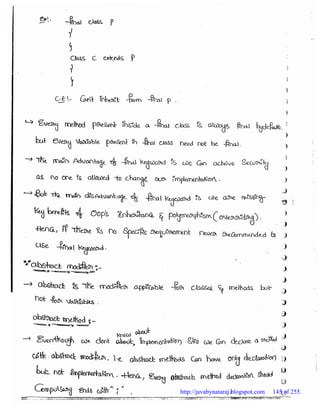 Ex:- final class P
{
}
class C extends P
{
}
C.E:- Can't inherit from final P.
→ Every method present inside a final class is always final by default
but every variable present in final class need not be final.
→ The main Advantage of final keyword is we can achieve Security
as no one is allowed to change our implementation.
→ But the main disadvantage of final keyword is we are missing
key benefits of OOP's Inheritance & polymorphism (overriding).
Hence, if there is no specific requirement never recommended to
use final keyword.
abstract modifier :-
→ abstract is the modifier applicable for classes & methods but
not for variables.
abstract method :-
→ Eventhough we don't know about implementation still we can declare a method
with abstract modifier. i.e abstract methods can have only declaration
but not implementation. Hence, Every abstract method declaration should
Compulsory ends with " ; ".
http://javabynataraj.blogspot.com 145 of 255.